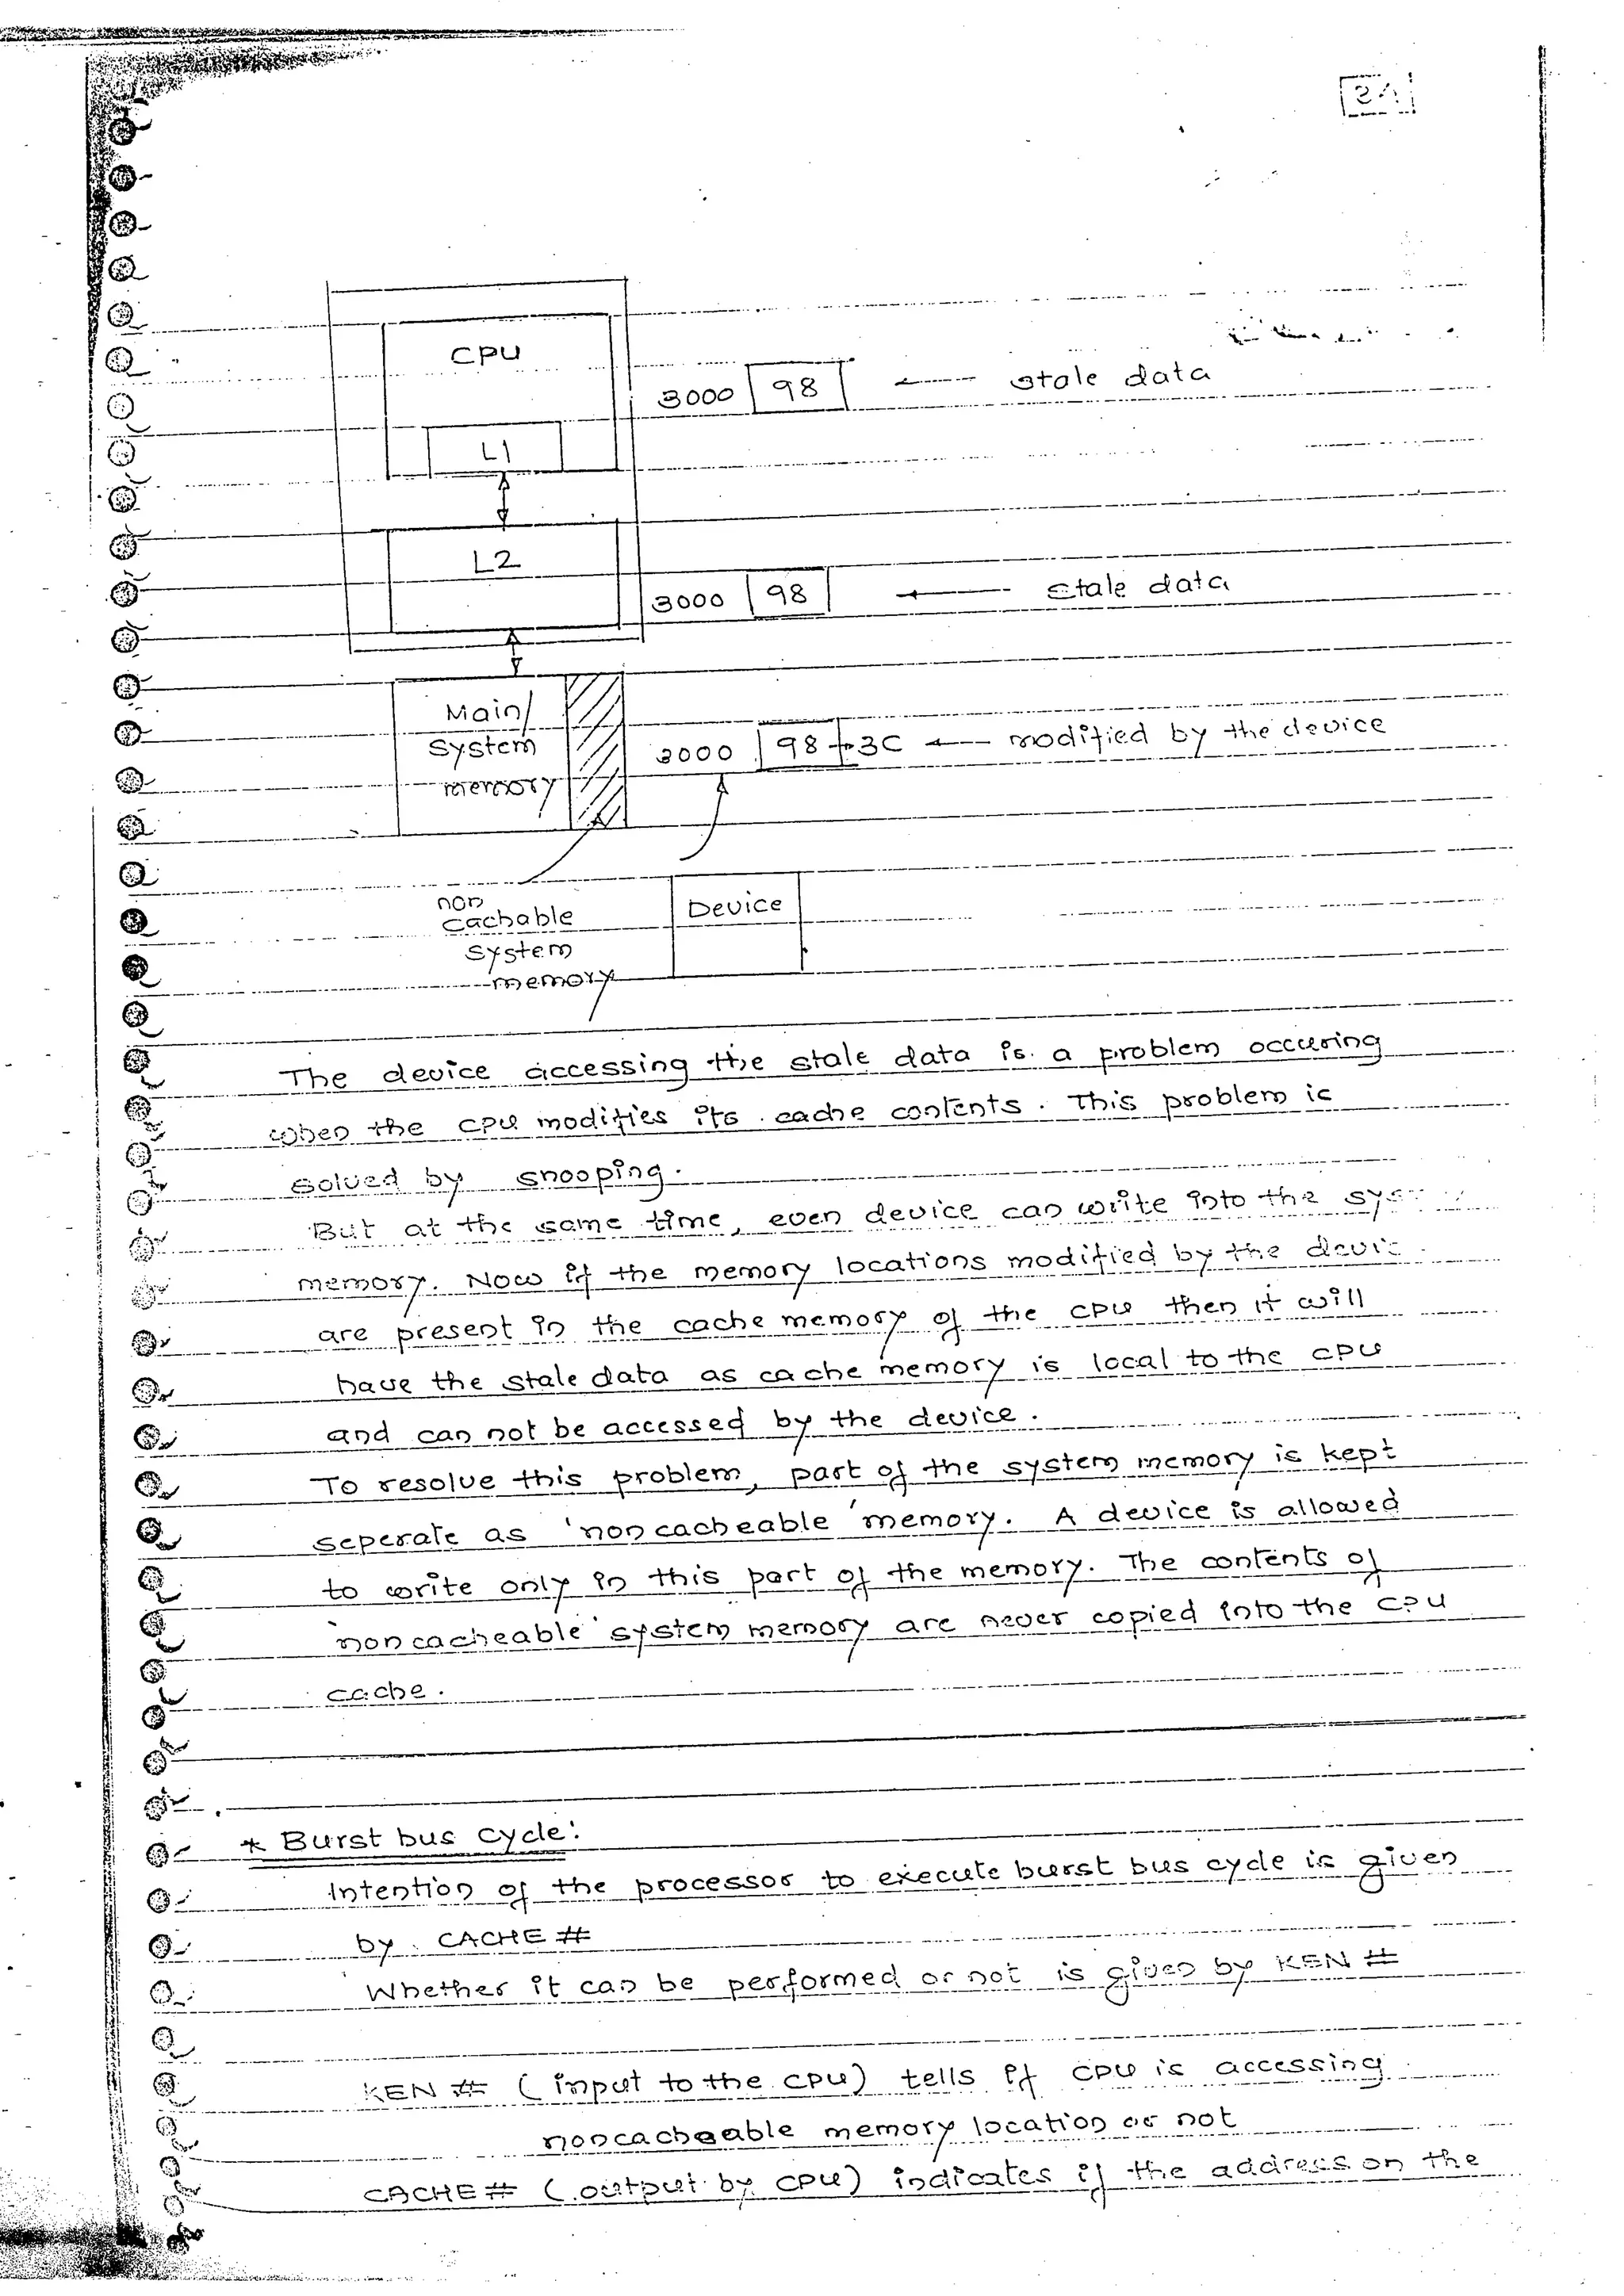 CPU
3000 98 ← stale data
L1
L2
3000 98 ← stale data
Main/
system
memory
3000 98 → 3C ← modified by the device
non
cachable
system
memory
Device
The device accessing the stale data is a problem occuring
when the CPU modifies its cache contents. This problem is
solved by snooping.
But at the same time, even device can write into the
memory. Now if the memory locations modified by the
are present in the cache memory of the CPU then it will
have the stale data as cache memory is local to the CPU
and can not be accessed by the device.
To resolve this problem, part of the system memory is kept
seperate as 'noncacheable' memory. A device is allowed
to write only in this part of the memory. The contents of
'noncacheable' system memory are never copied into the CPU
cache.
* Burst bus cycle:
Intention of the processor to execute burst bus cycle is given
by CACHE #
Whether it can be performed or not is given by KEN #
KEN # (input to the CPU) tells if CPU is accessing
noncacheable memory location or not
CACHE # (output by CPU) indicates if the address on the